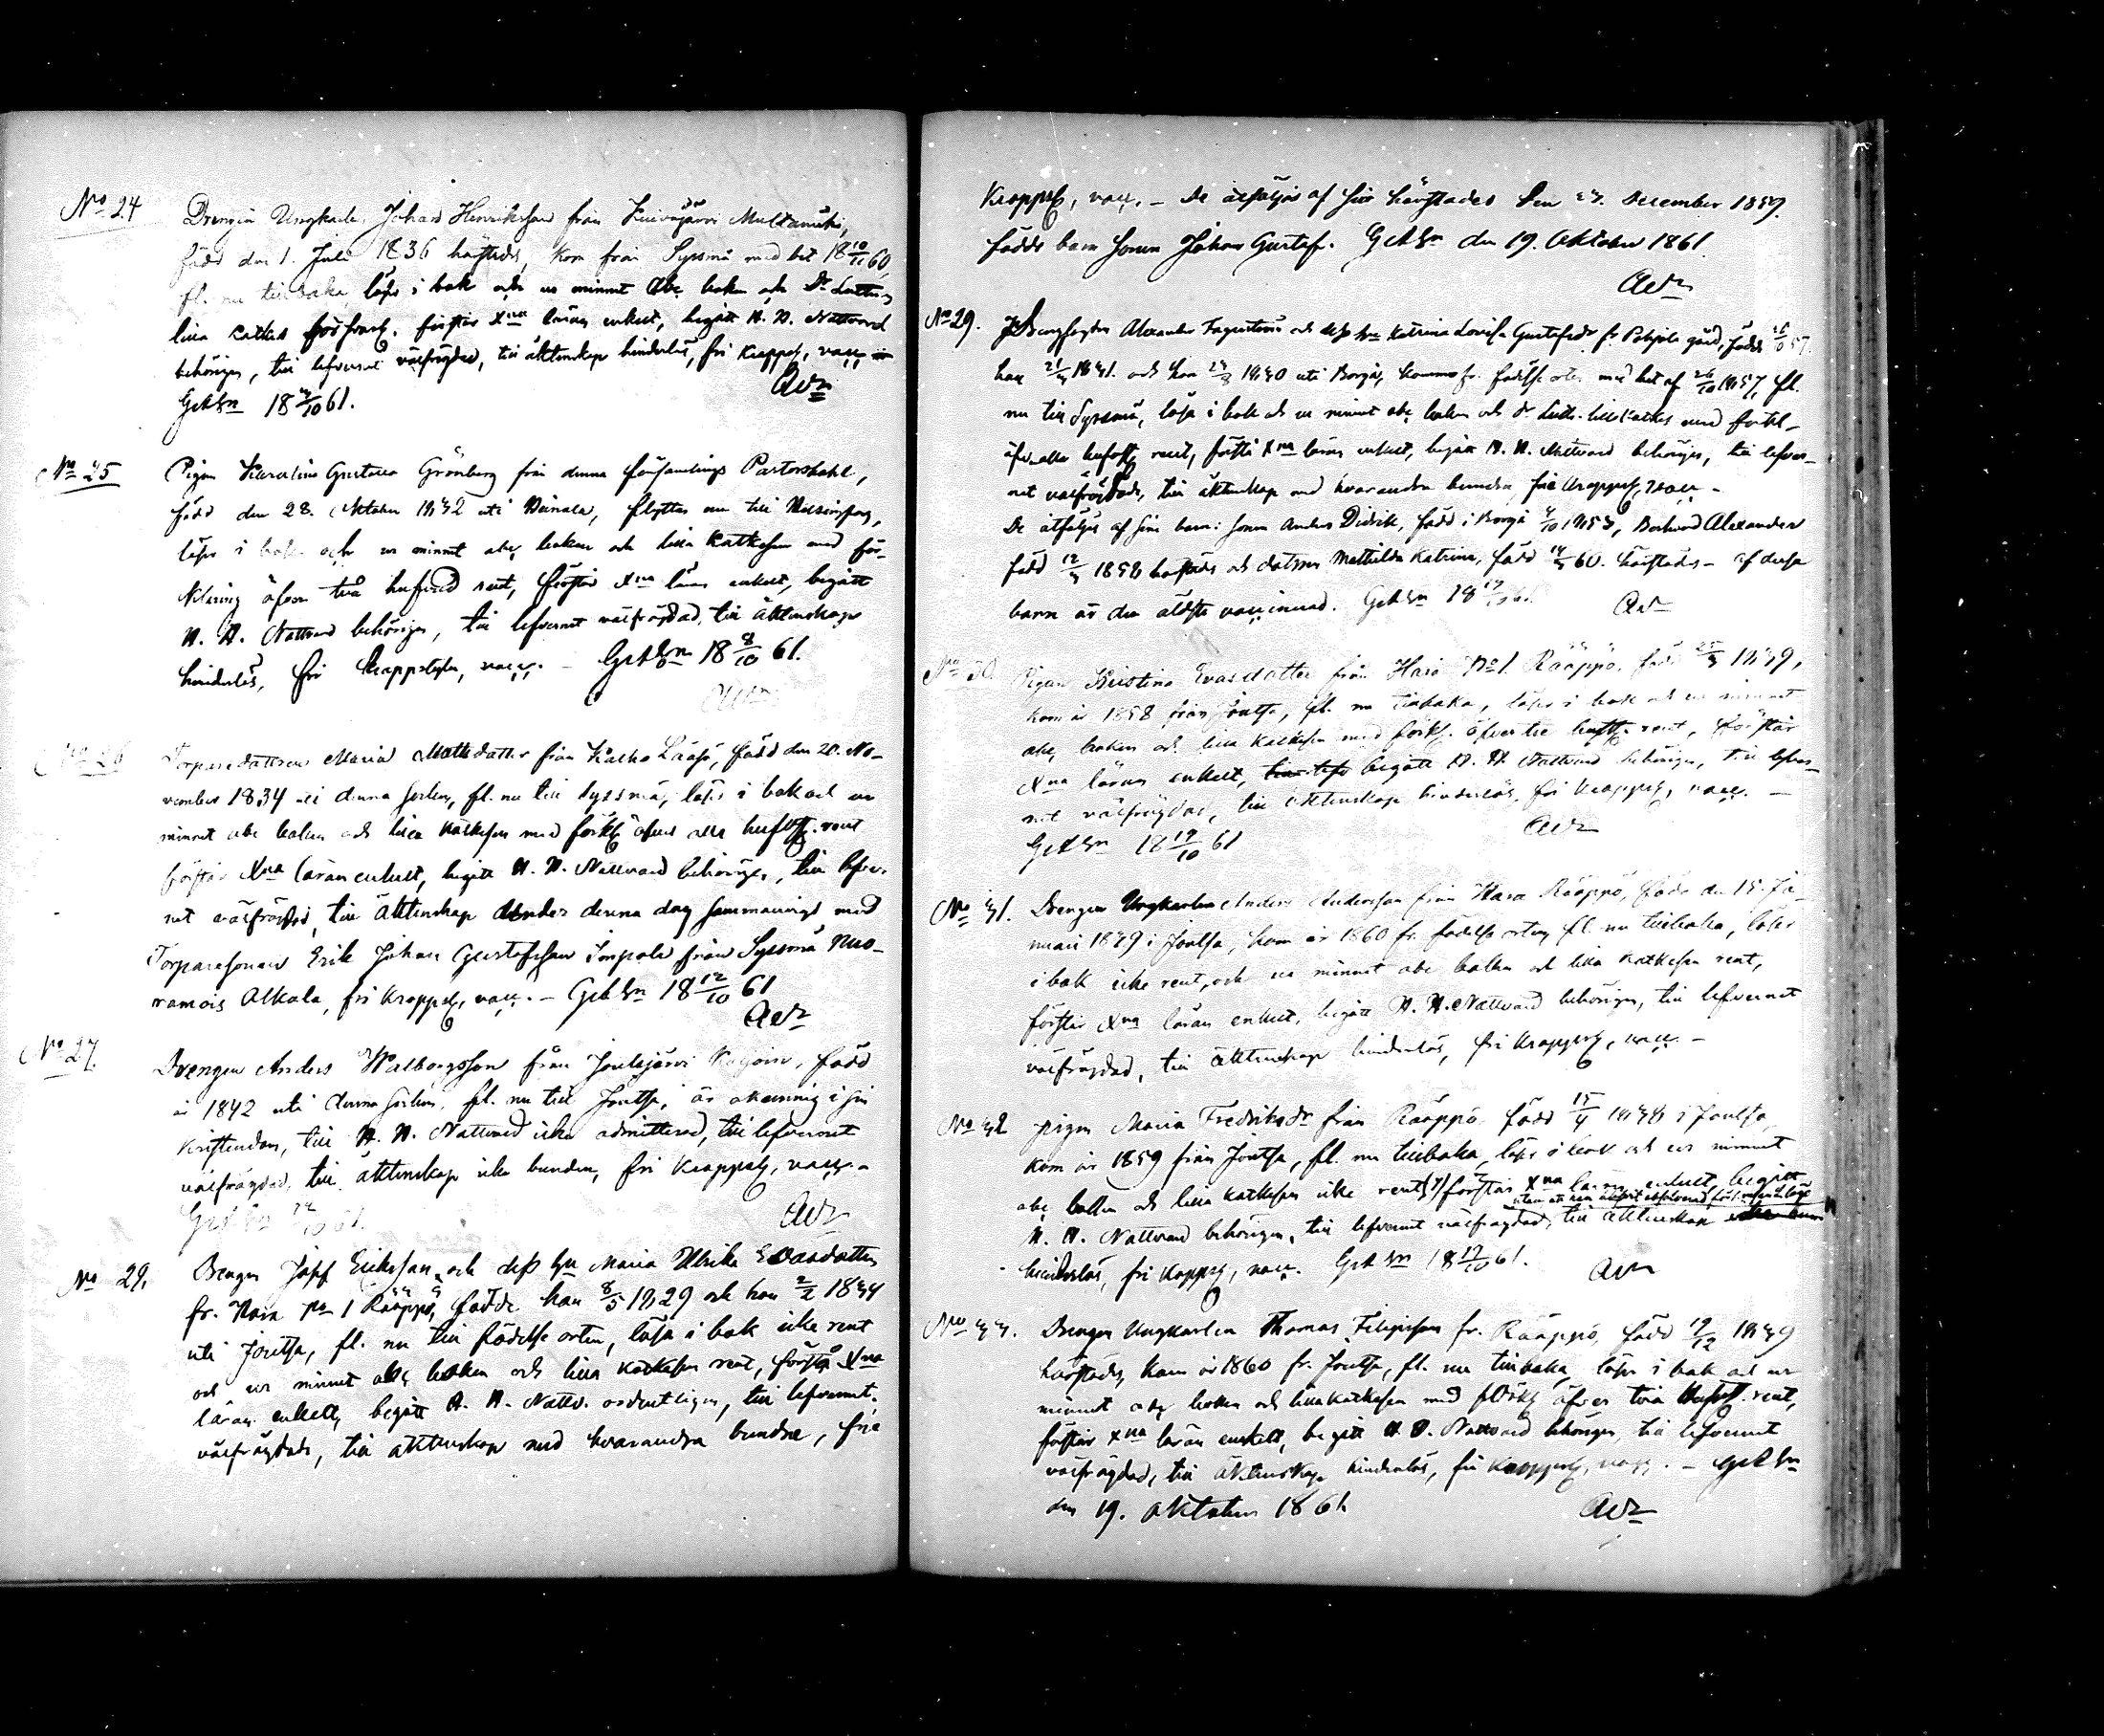 No 24 Drengen Ungkarlen Johan Henriksson från Kuivajärvi Multamäki,
född den 1. Juli 1836 härstädes, kom från Sysmä med bet 18 10/11 60,
fl. nu tillbaka, läser i bok och ur minnet Abc boken och Dr Luthers
lilla katkes förfrark. förstår Xna läran enkelt, begått H. H. Nattvard
behörigen, till lefvernet välfrägdad, till äktenskap hinderlös, fri kopps, vacc
Hartola 18 /10 61.
No 25 Pigan Karolina Gustava Grönberg från denna församlings Pastorsbohl,
född den 28. Oktober 1842 uti Heinola, flyttar nu till Helsingfors,
läser i bok och ur minnet abc boken och lilla katkesen med för-
klaring öfver två hufvud rent, förstår Xna läran enkelt, begått
H. H. Nattvard behörigen, till lefvernet välfrägdad, till äktenskap
hinderlös, fri koppstyln, vacc. – 18 8/10 61.
No 26 Torparedottren Maria Mattsdotter från Kalho Laasi, född den 20. No-
vember 1834 uti denna förs, fl. nu till Sysmä, läser i bok och ur
minnet abc boken och lilla katkesen med förkl öfver alla hufst. rent
förstår Xna läran enkelt, begått H. H. Nattvard behörigen, till lefver-
net välfrägdad, till äktenskap denna dag sammanvigd med
Torparesonen Erik Johan Gustafsson från Sysmä Nuo-
ramois Alkola, fri kopps, vacc. – 18 12/10 61
No 27. Drengen Anders Walborgsson från Joutsjärvi född
år 1842 uti denna förs, fl. nu till Joutsa, är okunnig i sin
kristendom, till H. H. Nattvard icke admitterad, till lefvernet
välfrägdad, till äktenskap icke bunden, fri kopps, vacc. –
No 29. Drengen Josef Eriksson och dess hu Maria Ulrika Evasdotter
fr. Hara No 1 Rääppö, födde han 8/5 1829 och hon 2/2 1834
uti Joutsa, fl. nu till födelse orten, läsa i bok icke rent
och ur minnet abc boken och lilla katkesen rent, förstå Xna
läran enkelt, begått H. H. Nattv. ordentligen, till lefvernet
välfrägdade, till äktenskap med hvarandra bundne, frie
kopps, vacc. – De åtföljas af sin härstädes den December 1859
födde barn sonen Johan Gustaf. den 19. Oktober 1861.
No 29. Alexander Fagerström och dess hu Katrina Lovisa Gustafsdr fr. Pohjola gård, födde
han 21/ 1831. och hon 24/8 1830 uti Borgå, kommo fr. födelse orten med bet af 26/10 1857, fl.
nu till Sysmä, läsa i bok och ur minnet abc boken och Dr Luth. lilla katkes med förkl-
öfver alla hufst. rent, förstå Xna läran enkelt, begått H. H. Nattvard behörigen, till lefver-
net välfrägdade, till äktenskap med hvarandra bundne, frie kopps, vacc –
De åtföljas af sine barn: sonen Anders Didrik, född i Borgå /10 1853, Alexander
född 12/ 1858 härstädes och dottren Mathilda Katrina, född 14/ 60. härstädes – af dessa
barn är den äldste vaccinerad. 18 19/10 61.
No 30. Pigan Kristina Evasdotter från Hara No 1. Rääppö, född 25/3 1839,
kom år 1858 från Joutsa, fl. nu tillbaka, läser i bok och ur minnet
abc boken och lilla katkesen med förkl. öfver tre hufst. rent, förstår
Xna läran enkelt, begått H. H. Nattvard behörigen, till lefver-
net välfrägdad, till äktenskap hinderlös, fri kopps, vacc. –
18 19/10 61
No 31. Drengen Ungkarlen Anders Andersson från Hara Rääppö, född den 15. Ja-
nuari 1839 i Joutsa, kom år 1860 fr. födelse orten, fl. nu tillbaka, läser
i bok icke rent, och ur minnet abc boken och lilla katkesen rent,
förstår Xna läran enkelt, begått H. H. Nattvard behörigen, till lefvernet
välfrägdad, till äktenskap hinderlös, fri kopps, vacc. –
No 32 Pigan Maria Fredriksdr från Rääppö född 15/4 1838 i Joutsa,
kom år 1859 från Joutsa, fl. nu tillbaka, läser i bok och ur minnet
abc boken och lilla katkesen icke rent, förstår Xna läran enkelt, begått
H. H. Nattvard behörigen, till lefvernet välfrägdad, till äktenskap
hinderlös, fri kopps, vacc. 18 19/10 61.
No 33. Drengen Ungkarlen Thomas Filipsson fr. Rääppö, född 19/12 1839
härstädes, kom år 1860 fr. Joutsa, fl. nu tillbaka, läser i bok och ur
minnet abc boken och lilla katkesen med förkl öfver två hufst. rent,
förstår Xna läran enkelt, begått H. H. Nattvard behörigen, till lefvernet
välfrägdad, till äktenskap hinderlös, fri kopps, vacc. –
den 19. Oktober 1861